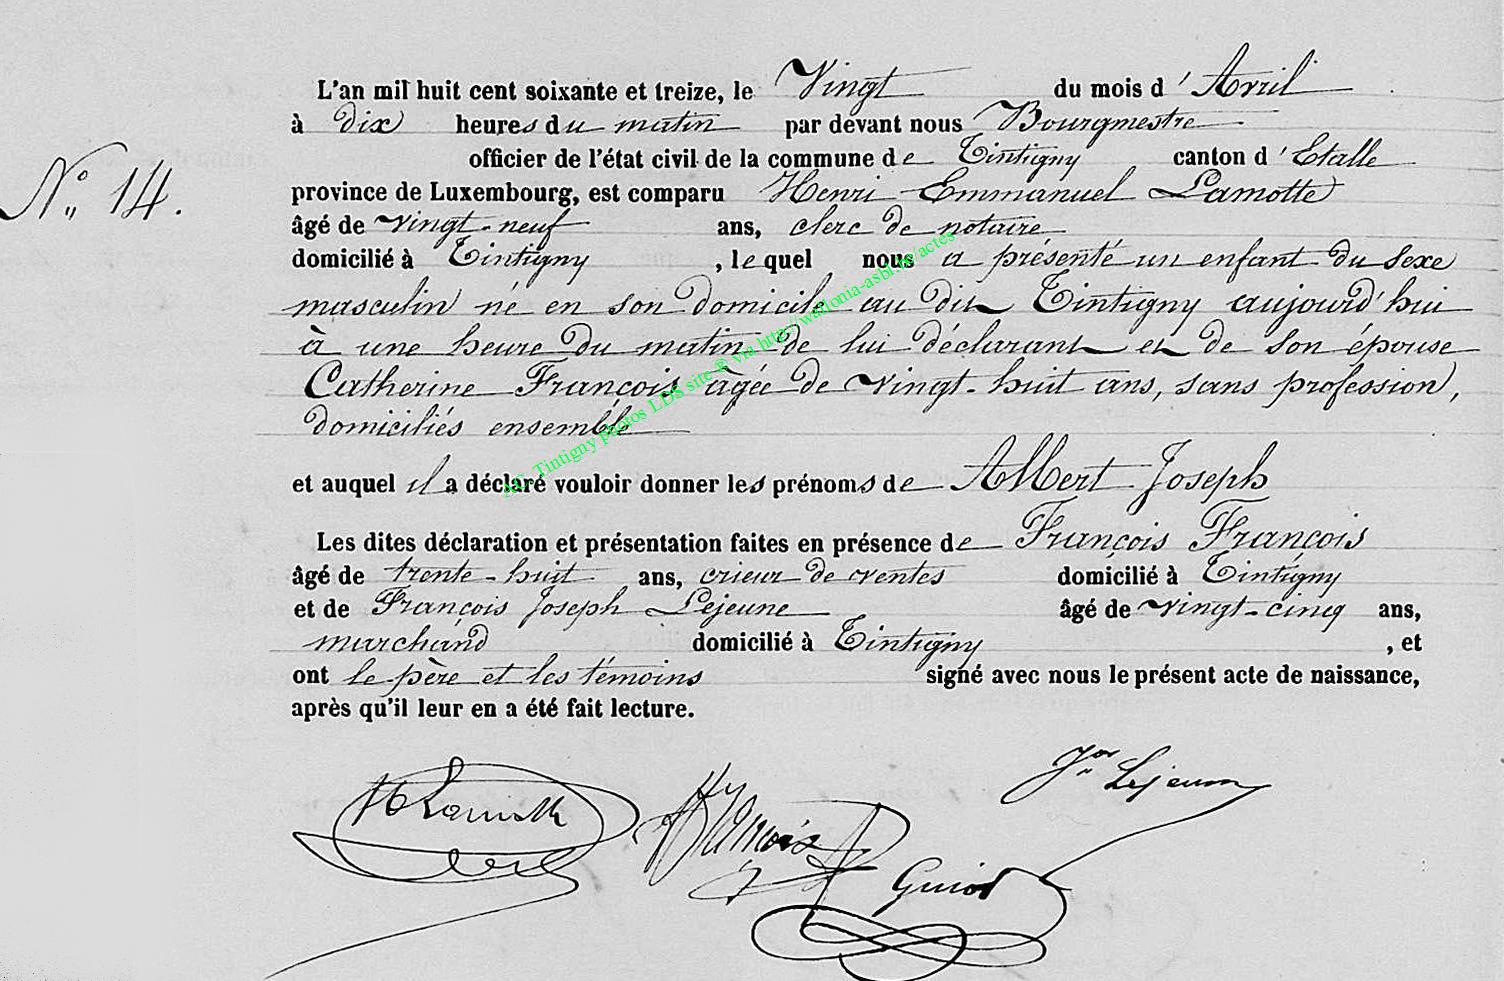 L'an mil huit cent soixante et treize, le Vingt du mois d'Avril
à dix heures du matin par devant nous Bourgmestre
officier de l'état civil de la commune de Tintigny canton d'Etalle
N° 14.
province de Luxembourg, est comparu Henri Emmanuel Lamotte
âgé de vingt-neuf ans, clerc de notaire
domicilié à Tintigny, lequel nous a présenté un enfant du sexe
masculin né en son domicile au dit Tintigny aujourd'hui
à une heure du matin de lui déclarant et de son épouse
Catherine François âgée de vingt-huit ans, sans profession,
domiciliés ensemble
AC Tintigny photos LDS site © via http://wallonia-asbl.be/actes
et auquel il a déclaré vouloir donner les prénoms de Albert Joseph
Les dites déclaration et présentation faites en présence de François François
âgé de trente-huit ans, crieur de ventes domicilié à Tintigny
et de François Joseph Lejeune âgé de vingt-cinq ans,
marchand domicilié à Tintigny, et
ont le père et les témoins signé avec nous le présent acte de naissance,
après qu'il leur en a été fait lecture.
Lejeune
H Lamotte
François
Guiot